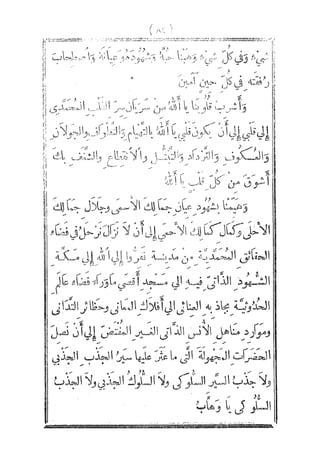 (٨٤)
شيء وفي كل شيء وهبنا حبه وشهوده وعيانه واصطحاب
رفقته في كل حين آمين
وأشرب قلوبنا يا ألله من سريان سر القلب المحمدي
إلى قلبي إلى أن يكون قلبي يا ألله بالتهيام والطواف والجولان
والعكوف والترداد والتبتل والانقطاع والشغف بك
أشوق من كل قلب يا ألله
وهيمنا بشهود عيان جمالك الأسمى وجلال جمالك
الأحلى وكمال كمالك الأحمى إلى أن لا نزال نرحل في فضاء
الحقائق المحمدية من مدينة ففروا إلى الله إلى مكة
الشهود الذاتي فيه إلى مسجد أقصى ما وراء فضاء عالم
الحدوثية بجاذبه الفنائي إلى أفلاك المعاني وحظائر التداني
وموارد مناهل الأنس الذاتي الغير المنقض إلى أن نصل
الحضرات المجهولة التي ما عثر عليها سير الجذب الجذبي
ولا جذب السير السلوكي ولا السلوك الجذبي ولا الجذب
السلوكي يا وهاب